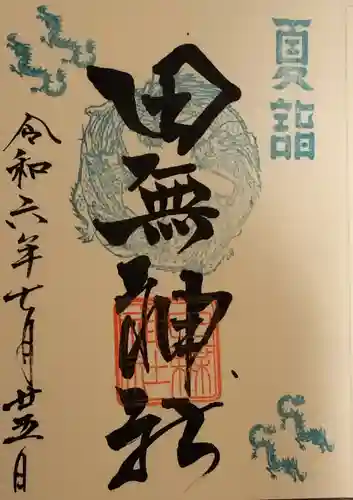 夏詣
田無神社
令和六年七月廿五日